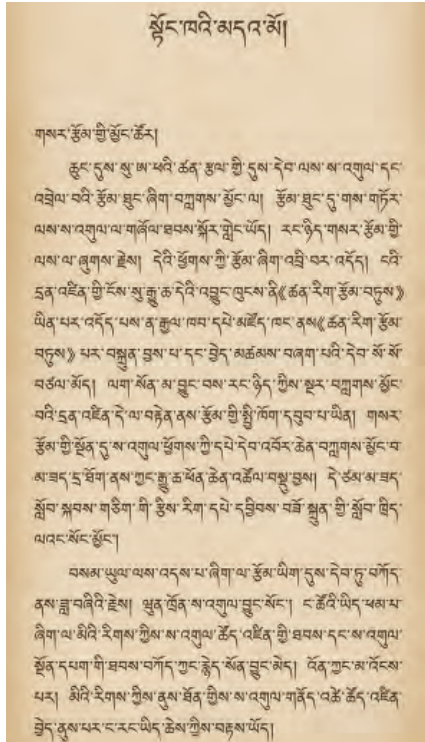 སྟོང་ཁའི་མདའ་མོ།
གསར་རྩོམ་གྱི་མྱོང་ཚོར།
ཆུང་དུས་སུ་ཨ་ཕའི་ཚན་རྩལ་གྱི་དུས་དེབ་ལས་ས་འགུལ་དང་
འབྲེལ་བའི་རྩོམ་ཐུང་ཞིག་བཀླགས་མྱོང་ལ། རྩོམ་ཐུང་དུ་གས་གཏོར་
ལས་ས་འགུལ་ལ་གཞོལ་ཐབས་སྐོར་གླེང་ཡོད། རང་ཉིད་གསར་རྩོམ་གྱི་
ལས་ལ་ཞུགས་རྗེས། དེའི་ཕྱོགས་ཀྱི་རྩོམ་ཞིག་འབྲི་བར་འདོད། ངའི་
དྲན་འཛིན་གྱི་ངོས་སུ་རྒྱུ་ཆ་དེའི་འབྱུང་ཁུངས་ནི《ཚན་རིག་རྩོམ་བཏུས》
ཡིན་པར་འདོད་པས་ན་རྒྱལ་ཁབ་དཔེ་མཛོད་ཁང་ནས《ཚན་རིག་རྩོམ་
བཏུས》པར་བསྐྲུན་བྱས་པ་དང་བྱེད་མཚམས་བཞག་པའི་དེབ་སོ་སོ་
བཙལ་མོད། ལག་སོན་མ་བྱུང་བས་རང་ཉིད་ཀྱིས་སྔར་བཀླགས་མྱོང་
བའི་དྲན་འཛིན་དེ་ལ་བརྟེན་ནས་རྩོམ་གྱི་སྤྱི་ཁོག་དབུབ་པ་ཡིན། གསར་
རྩོམ་གྱི་སྔོན་དུ་ས་འགུལ་ཕྱོགས་ཀྱི་དཔེ་དེབ་འབོར་ཆེན་བཀླགས་མྱོང་བ་
མ་ཟད་དྲ་ཐོག་ནས་ཀྱང་རྒྱུ་ཆ་ཕོན་ཆེན་འཚོལ་བསྡུ་བྱས། དེ་ཙམ་མ་ཟད་
སློབ་སྐབས་གཅིག་གི་རྩིས་རིག་དཔེ་དབྱིབས་བཟོ་སྐྲུན་གྱི་སློབ་ཁྲིད་
ལའང་སོང་མྱོང་།
བསམ་ཡུལ་ལས་འདས་པ་ཞིག་ལ་རྩོམ་ཡིག་དུས་དེབ་ཏུ་བཀོད་
ནས་ཟླ་བཞིའི་རྗེས། ཝུན་ཁྲོན་ས་འགུལ་བྱུང་སོང་། ང་ཚོའི་ཡིད་ཕམ་པ་
ཞིག་ལ་མིའི་རིགས་ཀྱིས་ས་འགུལ་ཚོད་འཛིན་གྱི་ཐབས་དང་ས་འགུལ་
སྔོན་དཔག་གི་ཐབས་བཀོད་ཀྱང་རྙེད་སོན་བྱུང་མེད། འོན་ཀྱང་མ་འོངས་
པར། མིའི་རིགས་ཀྱིས་ནུས་ཐོན་གྱིས་ས་འགུལ་གནོད་འཚེ་ཚོད་འཛིན་
བྱེད་ནུས་པར་ང་རང་ཡིད་ཆེས་ཀྱིས་བརྟས་ཡོད།